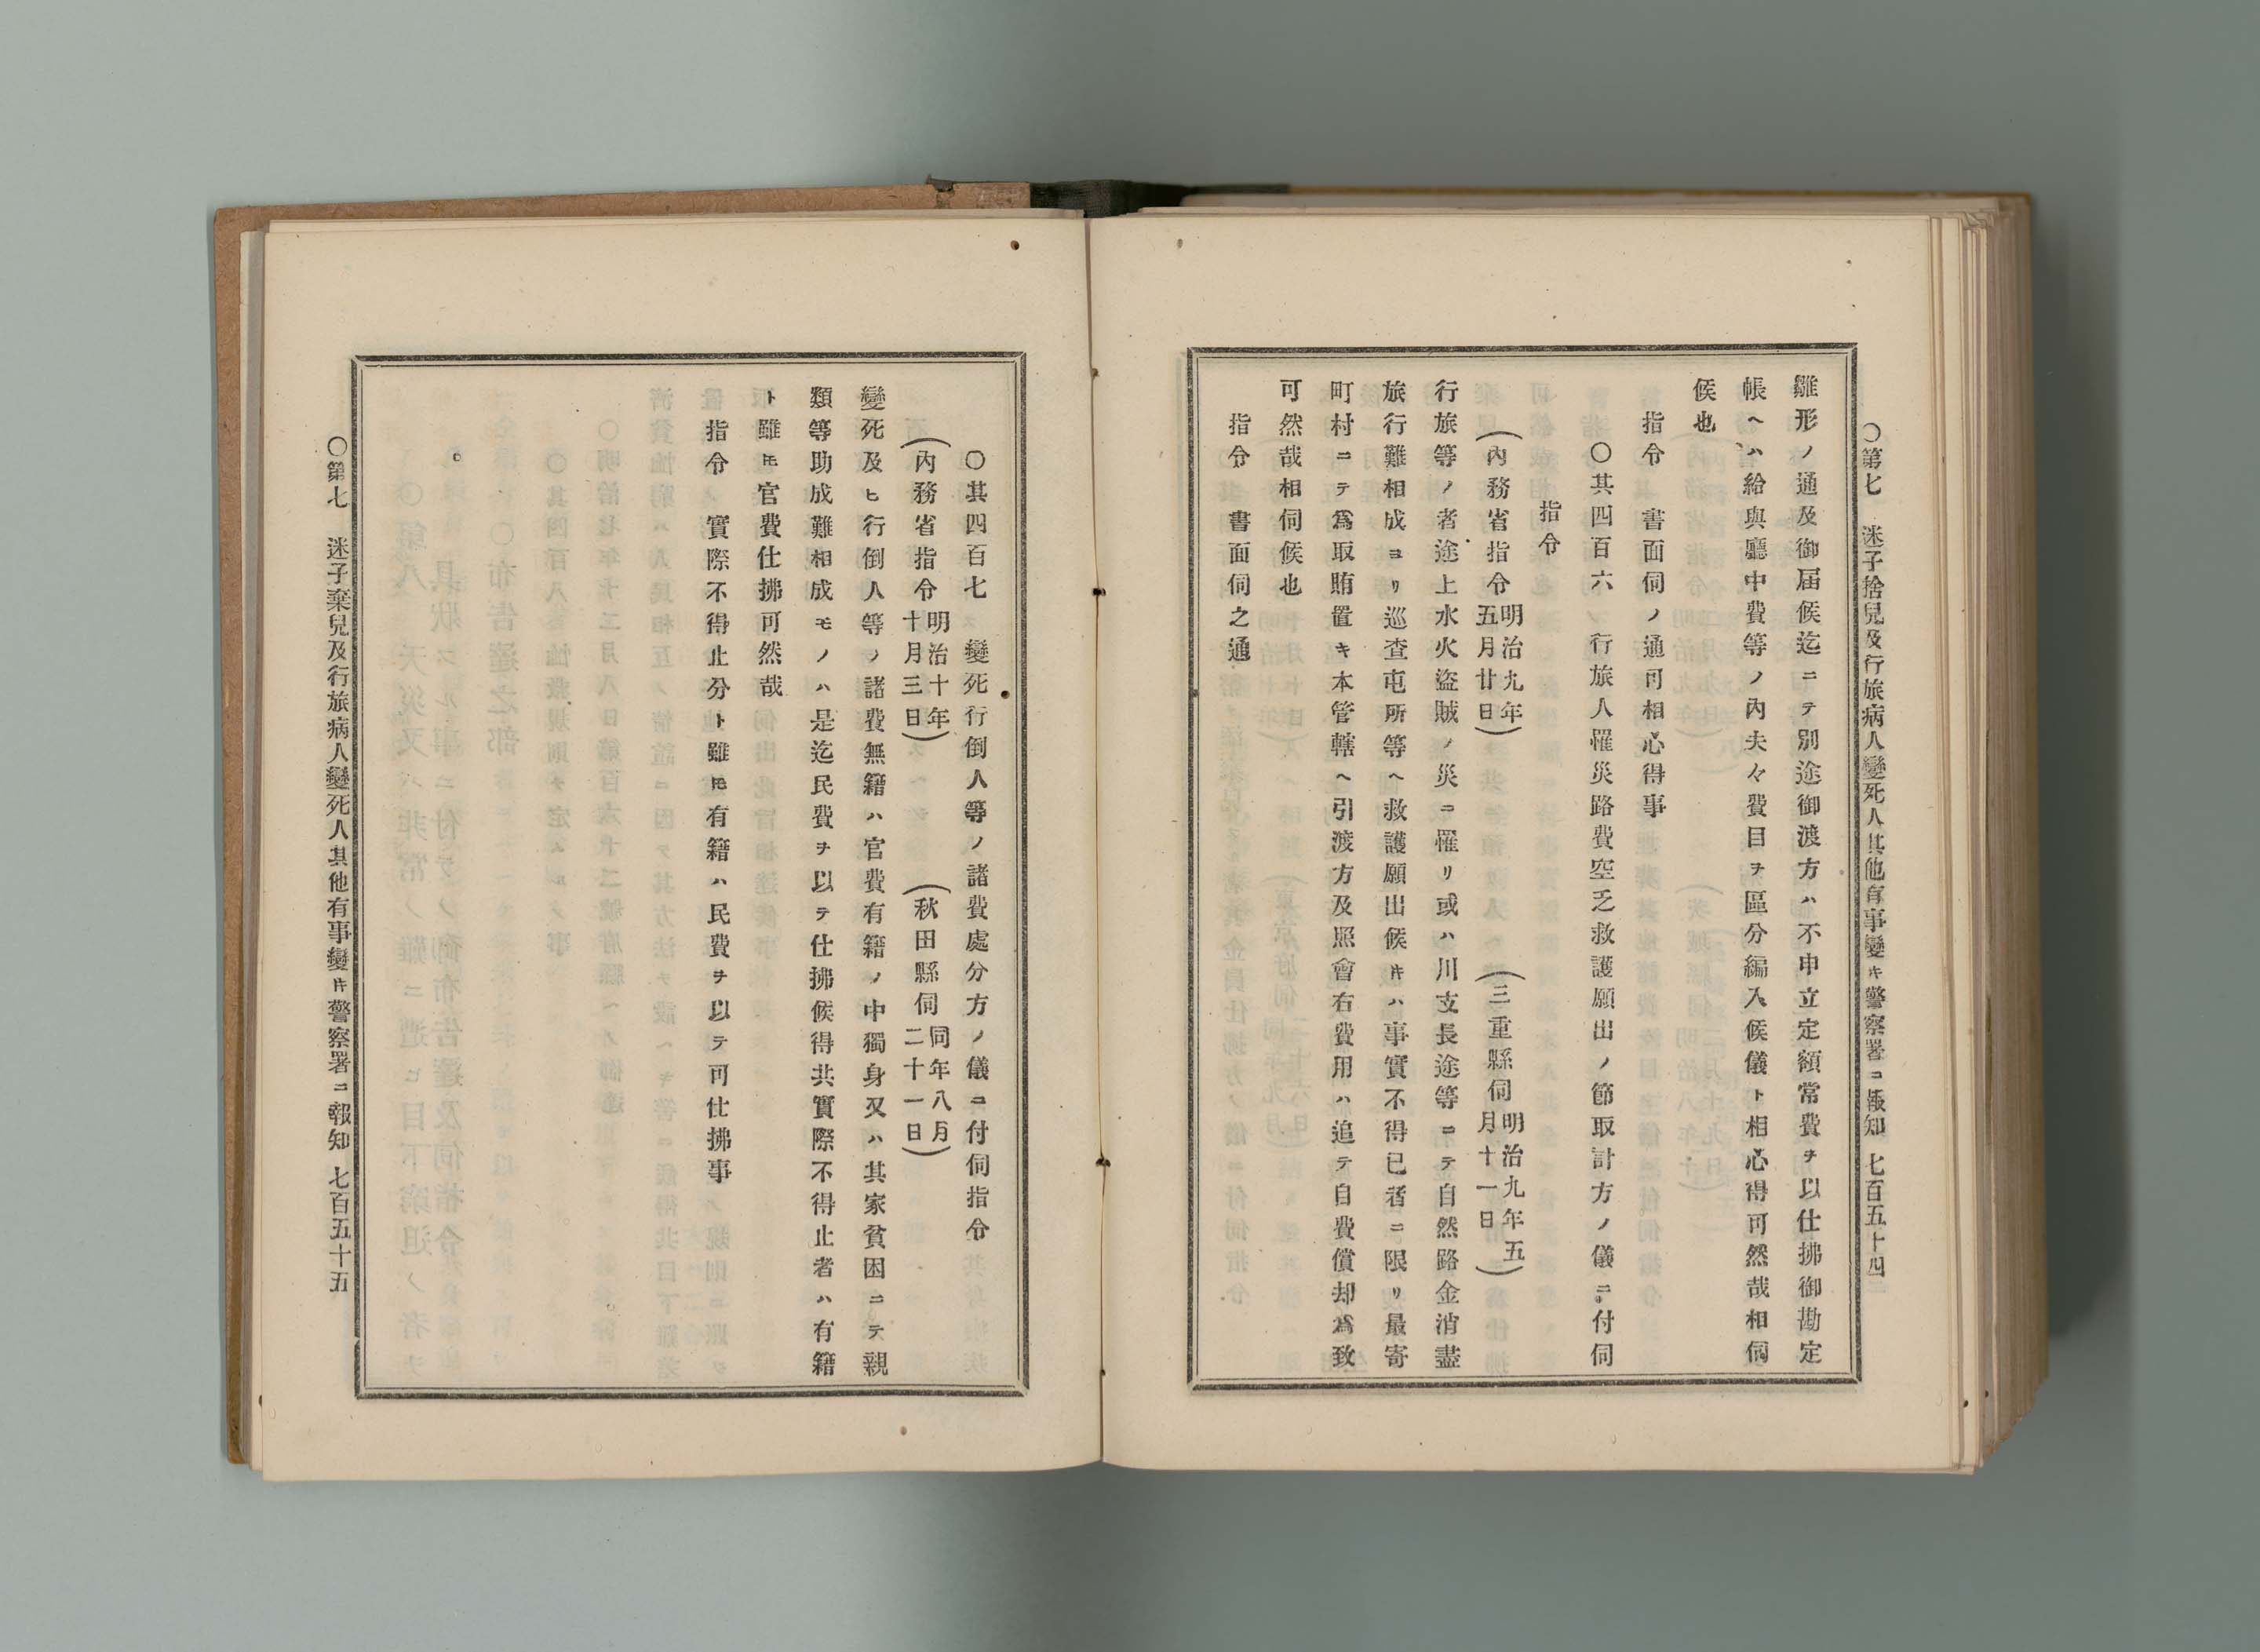 ○第七　迷子捨兒及行旅病人變死人其他有事變ノキ警察署ニ報知　七百五十四
雛形ノ通及御届候迄ニテ別途御渡方ハ不申立定額常費ヲ以仕拂御勘定
帳ヘハ給與廳中費等ノ內夫々費目ヲ區分編入候儀ト相心得可然哉相伺
候也
指令　書面伺ノ通可相心得事
○其四百六　行旅人罹災路費空乏救護願出ノ節取計方ノ儀ニ付伺
指令
(內務省指令 明治九年五月廿日)　(三重縣伺 明治九年五月十一日)
行旅等ノ者途上水火盜賊ノ災ニ罹リ或ハ川支長途等ニテ自然路金消盡
旅行難相成ヨリ巡查屯所等ヘ救護願出候ハ事實不得已者ニ限リ最寄
町村ニテ爲取賄置キ本管轄ヘ引渡方及照會右費用ハ追テ自費償却爲致
可然哉相伺候也
指令　書面伺之通
○其四百七　變死行倒人等ノ諸費處分方ノ儀ニ付伺指令
(內務省指令 明治十年十月三日)　(秋田縣伺 同年八月二十一日)
變死及ヒ行倒人等ノ諸費無籍ハ官費有籍ノ中獨身又ハ其家貧困ニテ親
類等助成難相成モノハ是迄民費ヲ以テ仕拂候得共實際不得止者ハ有籍
ト雖𪜈官費仕拂可然哉
指令　實際不得止分ト雖𪜈有籍ハ民費ヲ以テ可仕拂事
○第七　迷子棄兒及行旅病人變死人其他有事變ノキ警察署ニ報知　七百五十五